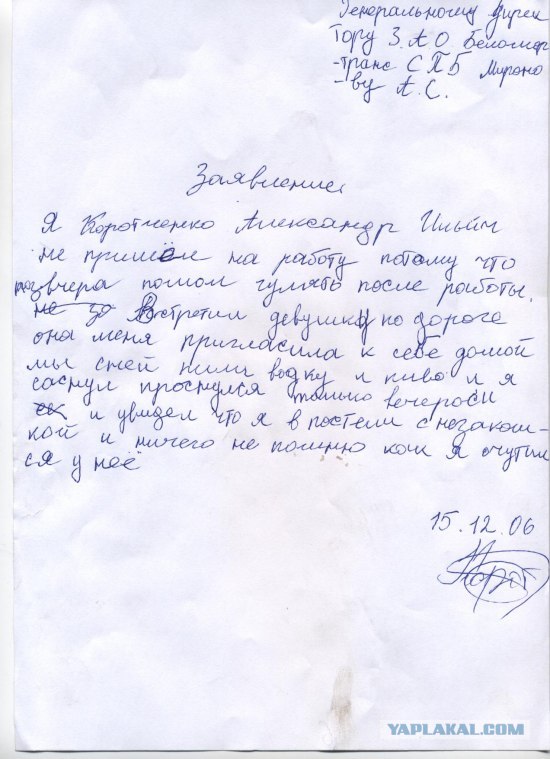 Генеральному дирек
тору З.А.О Беломор
-транс СПБ Мироно
-ву А.С.
Заявление
Я Коротченко Александр Ильич
не пришёл на работу потому что
позвчера пошол гулять после работы.
не за Встретил девушку по дороге
она меня пригласила к себе домой
мы сней пили водку и пиво и я
саснул проснулся только вечером
и увидел что я в постели с незаком-
кой и ничего не помню как я очутил
ся у неё
15.12.06
YAPLAKAL.COM